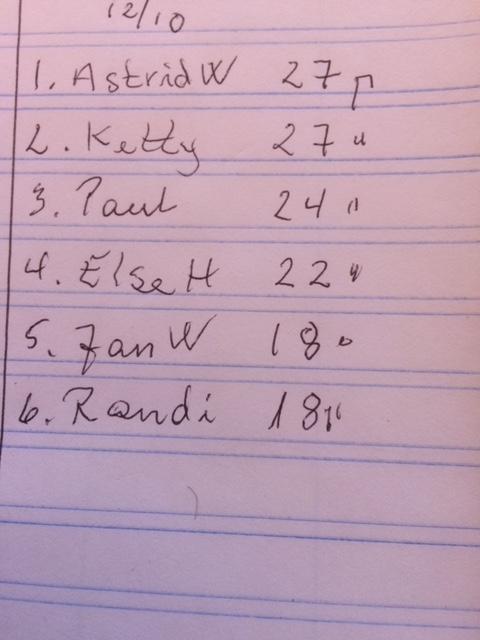 12/10
1. Astrid W 27 p
2. Ketty 27 "
3. Paul 24 "
4. Else H 22 "
5. Jan W 18 "
6. Randi 18 "